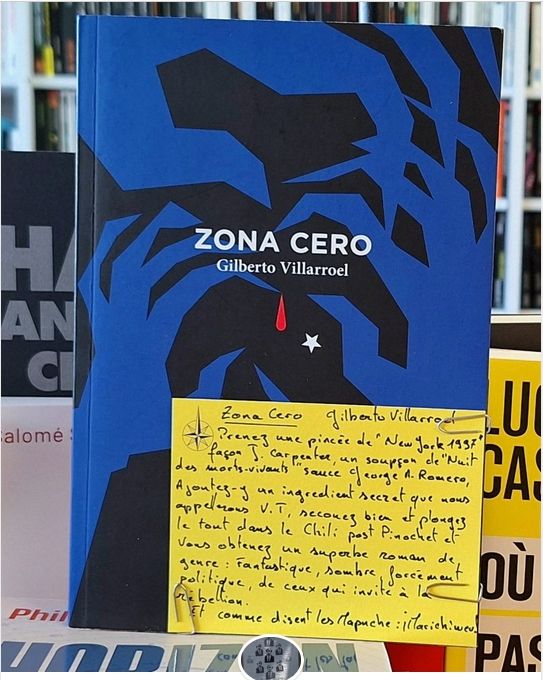 ZONA CERO
Gilberto Villarroel
Zona Cero Gilberto Villarroel
Prenez une pincée de "New York 1997"
façon J. Carpenter, un soupçon de "Nuit
des morts-vivants" sauce George A. Romero,
Ajoutez-y un ingredient secret que nous
appellerons V.T, secouez bien et plongez
le tout dans le Chili post Pinochet et
vous obtenez un superbe roman de
genre : fantastique, sombre, forcément
politique, de ceux qui invite à la
rébellion.
Et comme disent les Mapuche : ¡Marichiweu
HA
AN
CE
Salomé S
Phil
HORIZON
LUC
CAS
OÙ
PAS